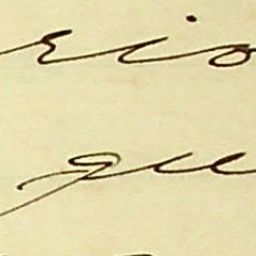 rio
que